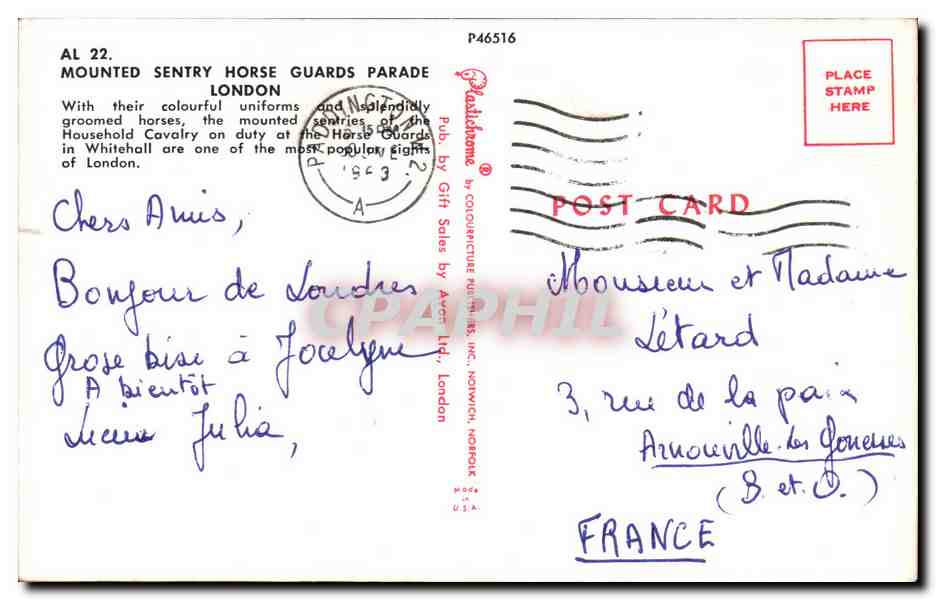 P46516
AL 22.
MOUNTED SENTRY HORSE GUARDS PARADE
LONDON
With their colourful uniforms and splendidly
groomed horses, the mounted sentries of the
Household Cavalry on duty at the Horse Guards
in Whitehall are one of the most popular sights
of London.
PADDINGTON W.2.
A
Chers Amis,
Bonjour de Londres
Grose bise à Jocelyne
A bientôt
Julia,
Plastichrome ® by COLOURPICTURE PUBLISHERS, INC., NORWICH, NORFOLK
Pub. by Gift Sales by Avon Ltd., London
MADE
in
U.S.A.
PLACE
STAMP
HERE
POST CARD
Monsieur et Madame
Létard
3, rue de la paix
Arnouville-les Gonesses
(S. et O.)
FRANCE
CPAPHIL